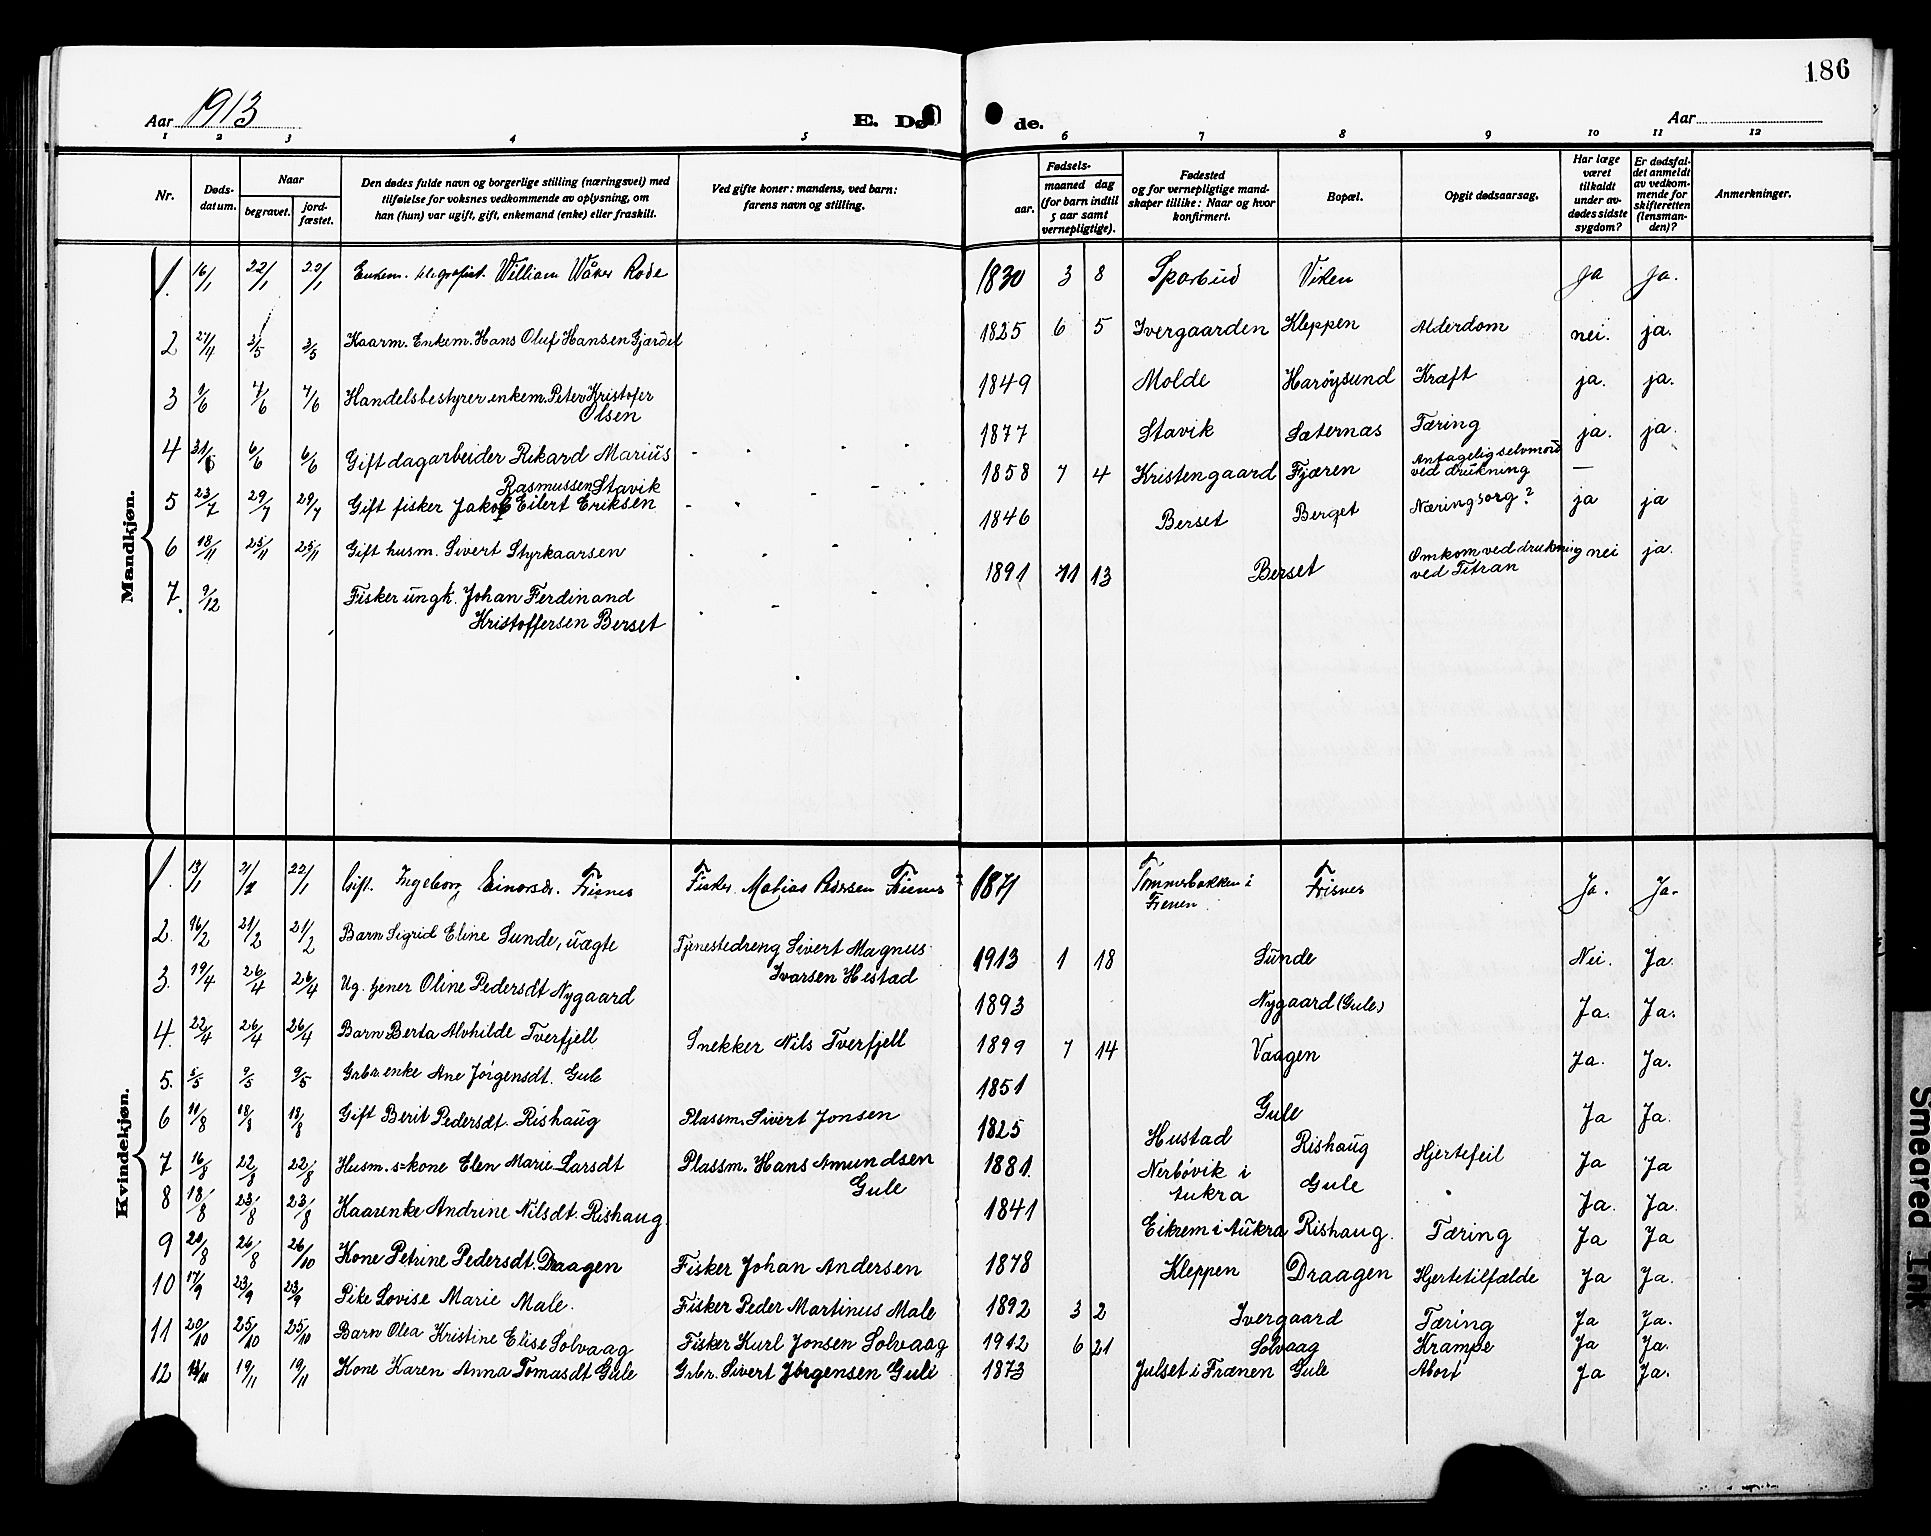 186
Aar 1913
E. Dø
de.
Aar
1 2 3 4 5 6 7 8 9 10 11 12
Nr.
Døds-
datum.
Naar
begravet.
jord-
fæstet.
Den dødes fulde navn og borgerlige stilling (næringsvei) med
tilføielse for voksnes vedkommende av oplysning, om
han (hun) var ugift, gift, enkemand (enke) eller fraskilt.
Ved gifte koner: mandens, ved barn:
farens navn og stilling.
Fødsels-
aar.
maaned dag
(for barn indtil
5 aar samt
vernepligtige).
Fødested
og for vernepligtige mand-
skaper tillike: Naar og hvor
konfirmert.
Bopæl.
Opgit dødsaarsag.
Har læge
været
tilkaldt
under av-
dødes sidste
sygdom?
Er dødsfal-
det anmeldt
av vedkom-
mende for
skifteretten
(lensman-
den)?
Anmerkninger.
Mandkjøn.
1. 16/1 22/1 22/1 Enkem. telegrafist. William Wåker Rode 1830 3 8 Sparbud Viken ja ja.
2 27/4 3/5 3/5 Kaarm. Enkem. Hans Oluf Hansen Gjardet 1825 6 5 Ivergaarden Kleppen Alderdom nei. ja.
3 1/6 7/6 7/6 Handelsbestyrer enkem. Peter Kristofer
Olsen 1849 Molde Harøysund Kræft ja. ja.
4 31/5 6/6 6/6 Gift dagarbeider Rikard Marius
Rasmussen Stavik 1877 Stavik Sæternæs Tæring ja. ja.
5 23/7 29/7 29/7 Gift fisker Jakob Eilert Eriksen 1858 7 4 Kristengaard Fjæren Antagelig selvmord
ved drukning —
6 18/11 25/11 25/11 Gift husm. Sivert Styrkaarsen 1846 Berset Berget Næringsorg? ja ja
7. 9/12 Fisker ungk. Johan Ferdinand
Kristoffersen Berset 1891 11 13 Berset Omkom ved drukning
ved Titran nei ja.
Kvindekjøn.
1. 13/1 21/1 22/1 Gift. Ingeborg Einarsdr. Frisnes Fisker. Matias Pedersen Frisnes 1871 Tommerbakken i
Frenen Frisnes Ja. Ja.
2. 16/2 21/2 21/2 Barn Sigrid Eline Sunde, uægte Tjenestedreng Sivert Magnus
Ivarsen Hestad 1913 1 18 Sunde Nei. Ja.
3. 19/4 26/4 26/4 Ug. tjener Oline Pedersdt Nygaard 1893 Nygaard (Gule) Ja. Ja.
4. 22/4 26/4 26/4 Barn Berta Alvhilde Tverfjell Snekker Nils Tverfjell 1899 7 14 Vaagen Ja. Ja.
5. 5/5 9/5 9/5 Grbr. enke Ane Jørgensdt. Gule 1851 Gule Ja Ja.
6 11/8 18/8 18/8 Gift Berit Pedersdt. Rishaug Plassm. Sivert Jonsen 1825 Hustad Rishaug Hjertefeil Ja Ja
7 16/8 22/8 22/8 Husm.s-kone Elen Marie Larsdt Plassm. Hans Amundsen
Gule 1881. Nerbøvik i
Aukra Gule Ja. Ja.
8 18/8 23/8 23/8 Kaarenke Andrine Nilsdt. Rishaug 1841 Eikrem i Aukra Rishaug. Tæring Ja Ja
9 20/8 26/8 26/10 Kone Petrine Pedersdt. Draagen Fisker Johan Andersen 1878 Kleppen Draagen Hjertetilfælde Ja Ja.
10 17/9 23/9 23/9 Pike Lovise Marie Male. Fisker Peder Martinus Male 1892 3 2 Ivergaard Tæring Ja Ja.
11 20/10 25/10 25/10 Barn Olea Kristine Elise Solvaag Fisker Kurl Jonsen Solvaag 1912 6 21 Solvaag Krampe Ja Ja.
12 19/11 19/11 Kone Karen Anna Tomasdt Gule Grbr. Sivert Jørgensen Gule 1873 Julset i Frænen Gule Abort Ja Ja.
Smeared Ink